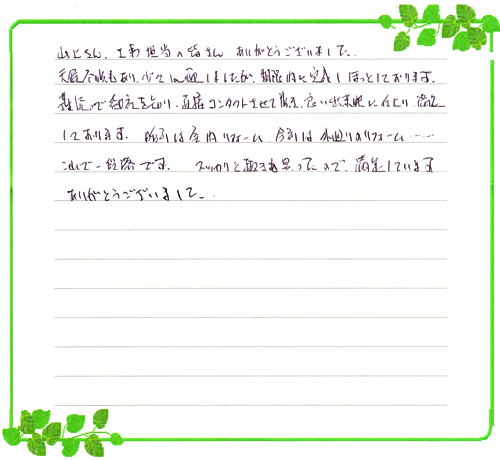 山上さん、工事担当の皆さん ありがとうございました。
天候不順もあり、少々心配しましたが、期限内に完成しほっとしております。
コンタクトさせて頂き、良い出来映に仕上り 満足
しております。 前回は室内リフォーム、今回は水廻りのリフォーム……
これで一段落です。 スッキリと 思ったので、満足しています
ありがとうございました。